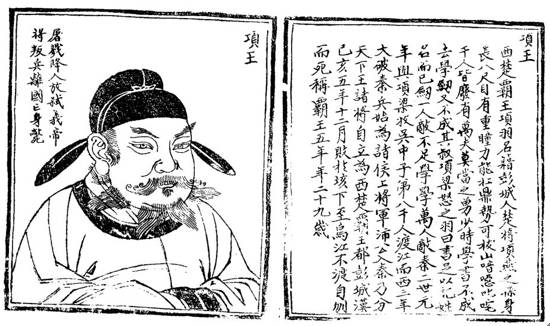 項王
西楚霸王項羽名籍彭城人楚將項燕之孫身
長八尺目有重瞳力能扛鼎勢可拔山喑噁叱咤
千人皆靡有萬夫莫當之勇少時學書不成
去學劔又不成其叔項梁怒之羽曰書足以記姓
名而已劔一人敵不足學學萬人敵秦二世元
年與項梁起吳中子弟八千人渡江而西二年
大破秦兵始為諸侯上將軍沛公秦乃分
天下王諸將自立為西楚霸王都彭城漢
己亥五年十二月敗北垓下至烏江不渡自刎
而死稱霸王五年年二十九歲
項王
屠戮降人放弒義帝
將叛兵離國亡身斃